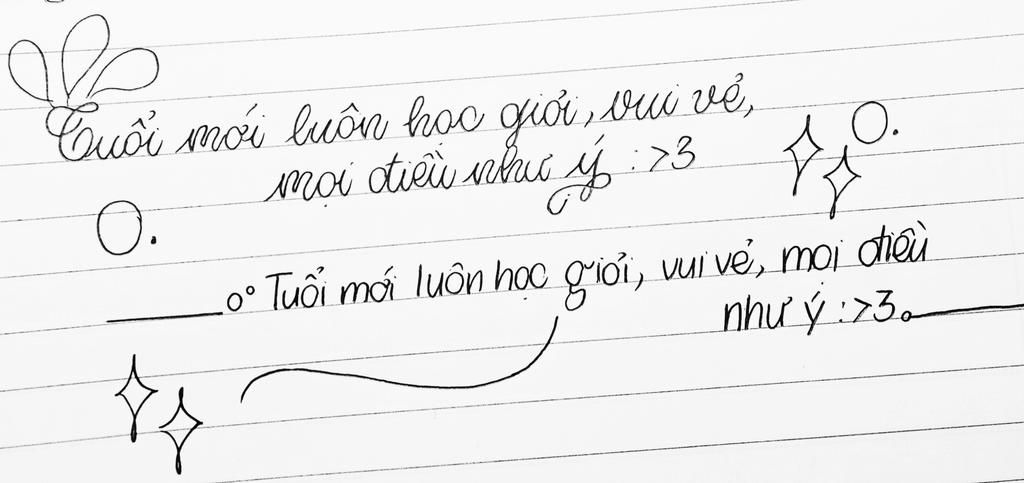 Tuổi mới luôn học giỏi, vui vẻ,
mọi điều như ý :>3
Tuổi mới luôn học giỏi, vui vẻ, mọi điều
như ý :>3